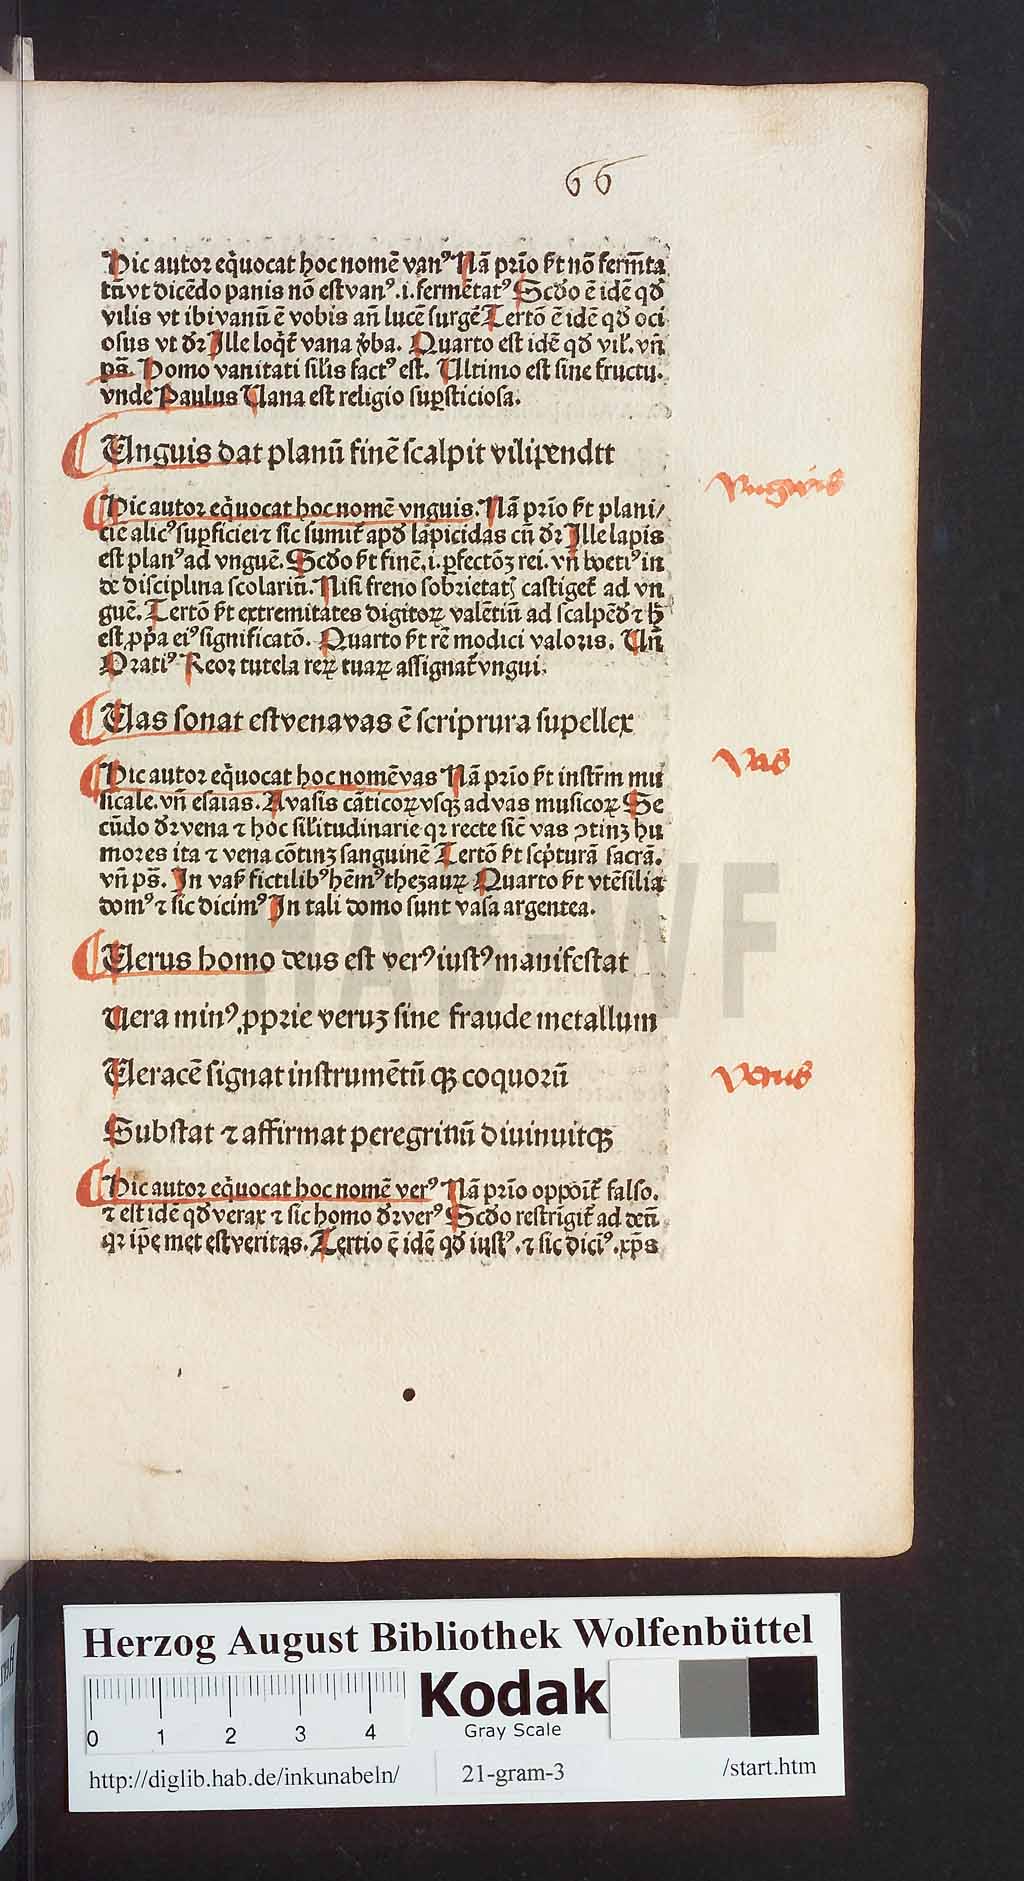 66
Hic autor eq̃uocat hoc nomē vanꝰ Nā prīo s̃t nō ferm̄ta
tū vt dicēdo panis nō est vanꝰ .i. fermētatꝰ Scd̄o ē idē qd̄
vilis vt ibi vanū ē vobis añ lucē surgē Tertō ē idē qd̄ oci
osus vt dr̄ Ille loqt̃ vana v̄ba. Quarto est idē qd̄ vil'. vñ
ps̄. Homo vanitati sil'is factꝰ est. Ultimo est sine fructu.
vnde Paulus Uana est religio suꝑsticiosa.
Unguis dat planū finē scalpit vilipendtt
Vngwis
Hic autor eq̃uocat hoc nomē vnguis. Nā prīo s̃t plani/
cie alicꝰ suꝑficiei ⁊ sic sumit̃ apd̄ lapicidas cū dr̄ Ille lapis
est planꝰ ad vnguē. Scd̄o s̃t finē .i. ꝑfectōꝫ rei. vñ boetiꝰ in
de disciplina scolariū. Nisi freno sobrietatꝭ castiget̃ ad vn
guē. Tertō s̃t extremitates digitoꝝ valētiū ad scalpēd̄ ⁊ h̄
est ꝓpͥa eiꝰ significatō. Quarto s̃t rē modici valoris. Uñ
Oratiꝰ Reor tutela reꝝ tuaꝝ assignat̃ vngui.
Uas sonat est vena vas ē scriprura supellex
Vas
Hic autor eq̃uocat hoc nomē vas Nā prīo s̃t instr̄m mu
sicale. vñ esaias. A vasis cāticoꝝ vsqꝫ ad vas musicoꝝ Se
cūdo dr̄ vena ⁊ hoc sil'itudinarie qr recte sic̄ vas ꝯtinꝫ hu
mores ita ⁊ vena cōtinꝫ sanguinē Tertō s̃t scͥpturā sacrā.
vñ ps̄. In vas̄ fictilibꝰ hēmꝰ thezauꝝ Quarto s̃t vtēsilia
domꝰ ⁊ sic dicimꝰ In tali domo sunt vasa argentea.
Uerus homo deus est verꝰ iustꝰ manifestat
Uera minꝰ ꝓprie veruꝫ sine fraude metallum
Ueracē signat instrumētū qꝫ coquorū
Verus
Substat ⁊ affirmat peregrinū diuinuitqꝫ
Hic autor eq̃uocat hoc nomē verꝰ Nā prīo oppoīt̃ falso.
⁊ est idē qd̄ verax ⁊ sic homo dr̄ verꝰ Scd̄o restrīgit̃ ad deū
qr ip̄e met est veritas. Tertio ē idē qd̄ iustꝰ. ⁊ sic dicīꝰ. xp̄s
HAB-WF
Herzog August Bibliothek Wolfenbüttel
0 1 2 3 4
Kodak
Gray Scale
http://diglib.hab.de/inkunabeln/ 21-gram-3 /start.htm